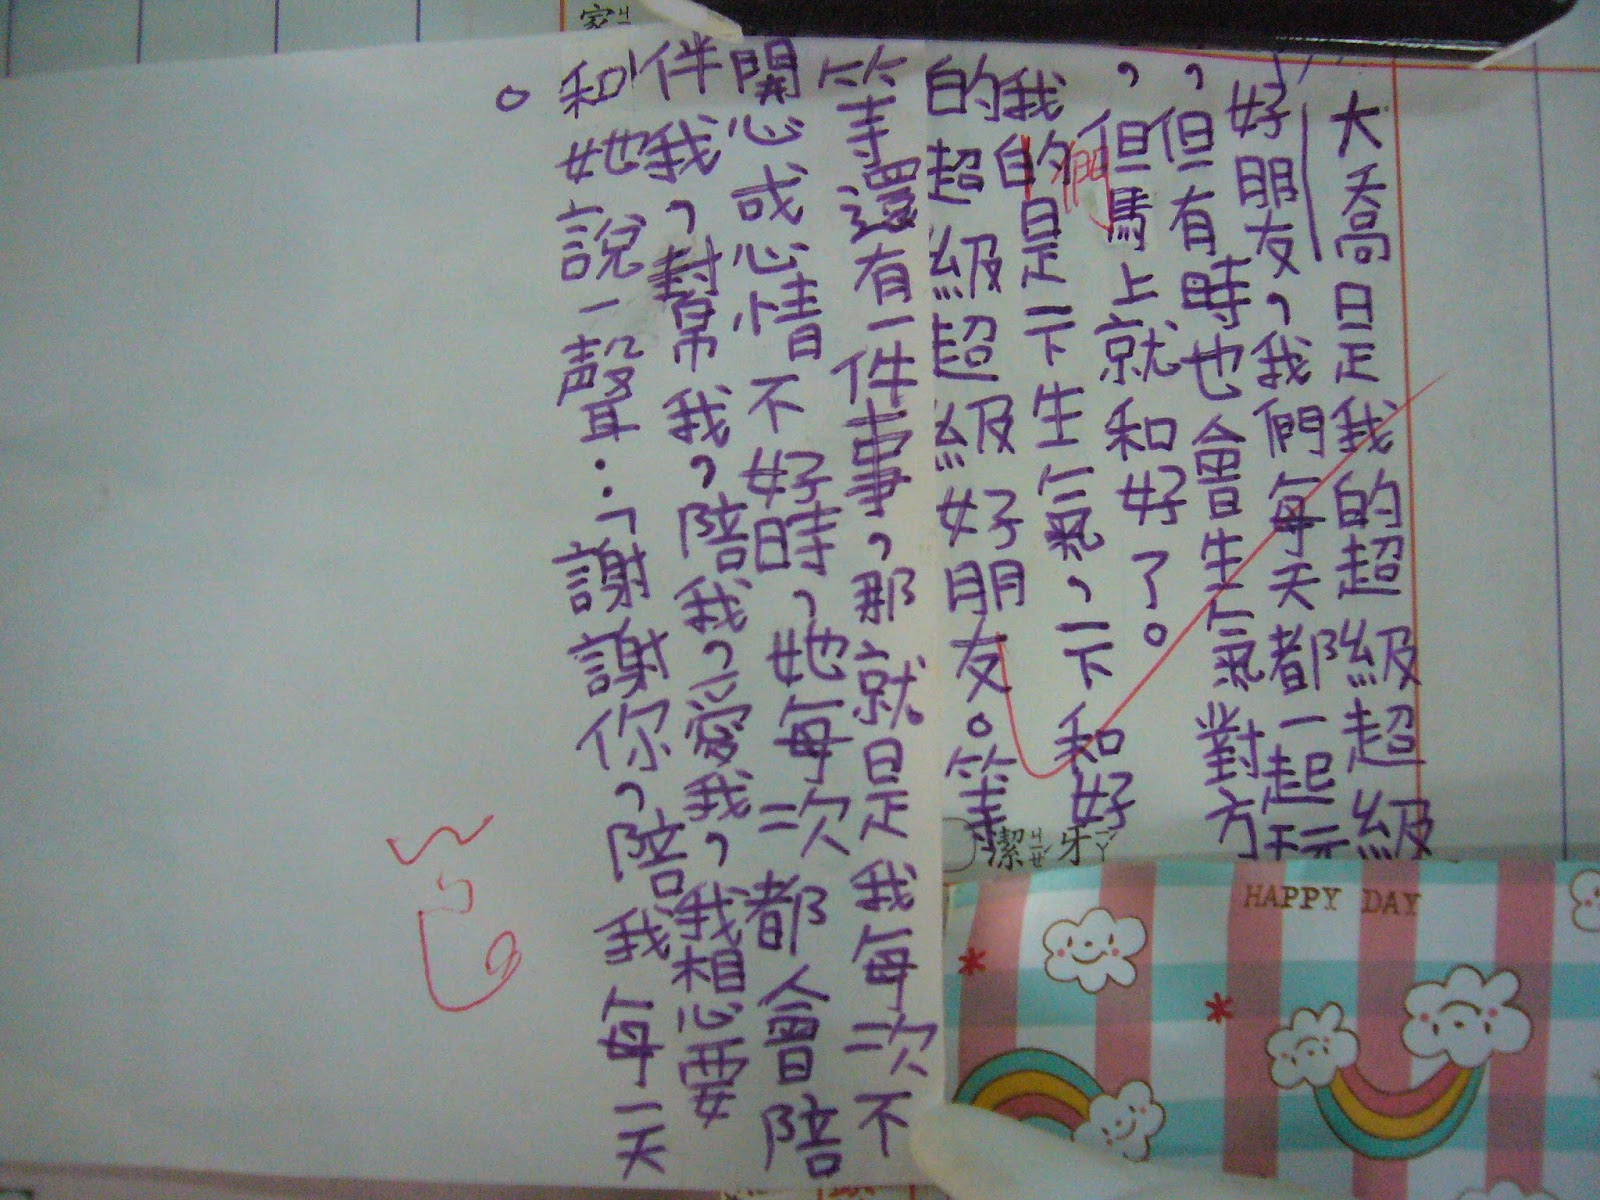 大喬是我的超級超級
好朋友，我們每天都一起玩
，但有時也會生氣對方
，但馬上就和好了。
我們的是一下生氣，一下和好
的超級超級好朋友。等
等等還有一件事，那就是我每次不
開心或心情不好時，她每次都會陪
伴我，幫我，陪我，愛我，我想要
和她說一聲：「謝謝你，陪我每一天
。
家ㄐㄧ
潔ㄐㄧㄝˊ牙ㄧㄚˊ
HAPPY DAY